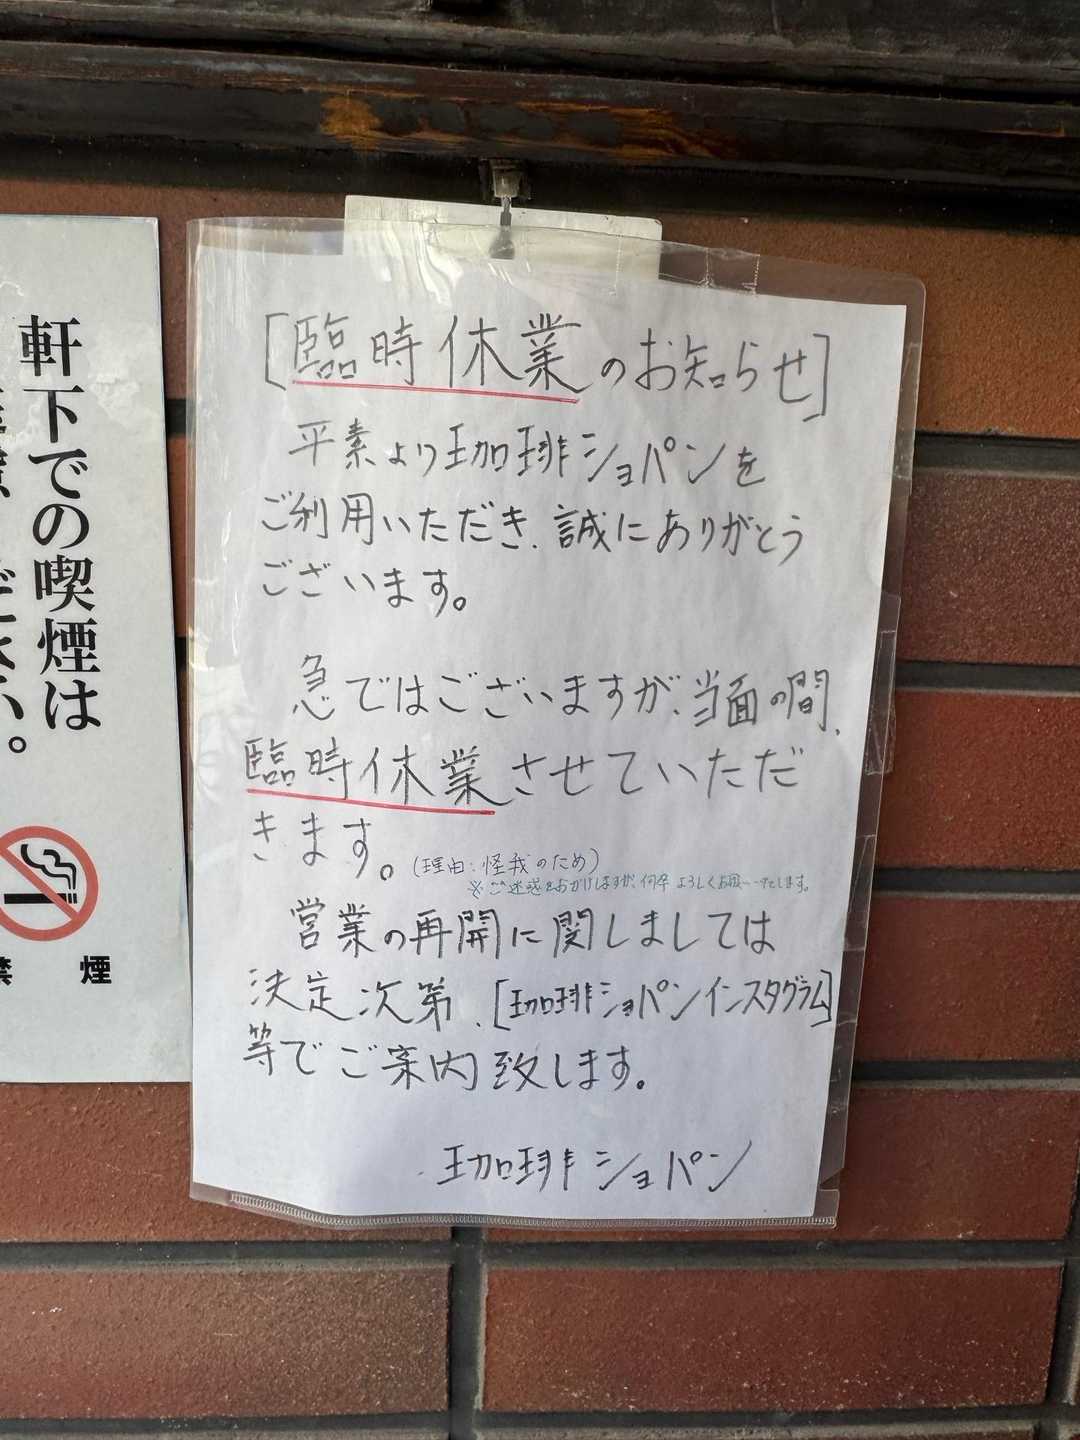 [臨時休業のお知らせ]
平素より珈琲ショパンを
ご利用いただき、誠にありがとう
ございます。
急ではございますが、当面の間、
臨時休業させていただ
きます。(理由：怪我のため)
※ご迷惑をおかけしますが、何卒よろしくお願い致します。
営業の再開に関しましては
決定次第、[珈琲ショパンインスタグラム]
等でご案内致します。
珈琲ショパン
軒下での喫煙は
ださい。
禁煙